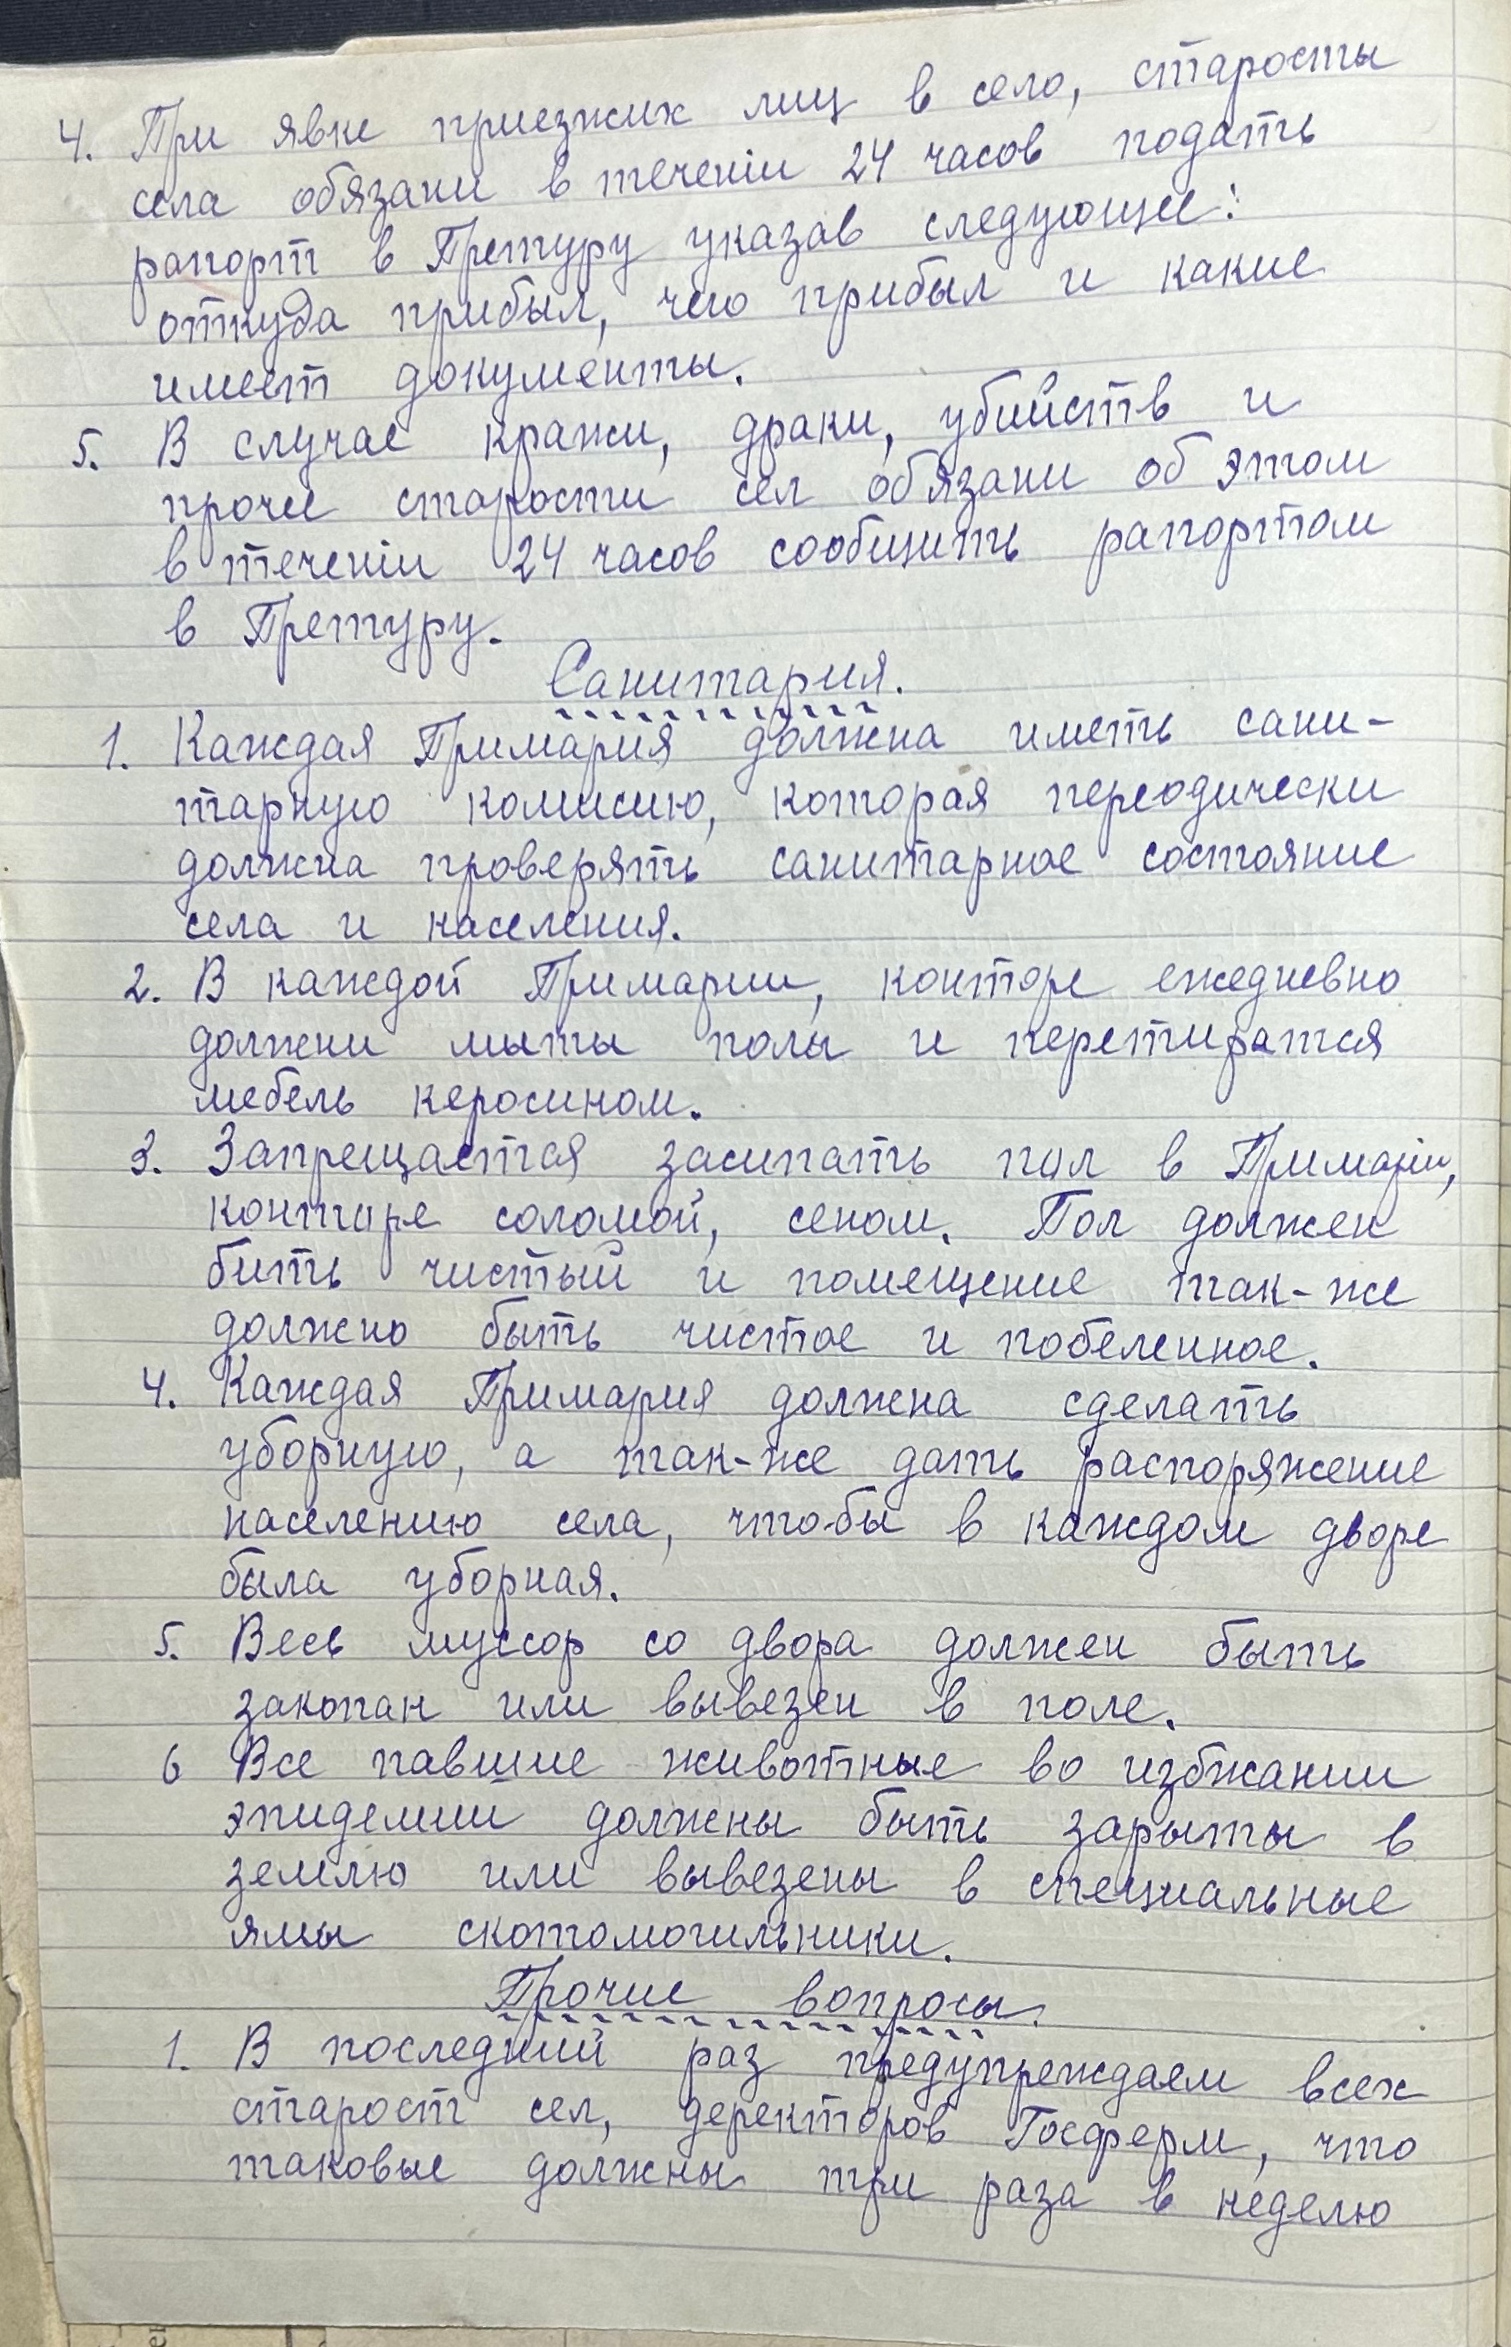 4. При явке приезжих лиц в село, старосты
села обязани в течениі 24 часов подать
рапорт в Претуру указав следующее:
откуда прибыл, чего прибыл и какие
имеет документы.
5. В случае кражи, драки, убийств и
проче старости сел обязани об этом
в течениі 24 часов сообщить рапортом
в Претуру.
Санитария.
1. Каждая Примария должна иметь сани-
тарную комисию, которая переодически
должна проверять санитарное состояние
села и населения.
2. В каждой Примарии, конторе ежедневно
должни мыты полы и перетиратся
мебель керосином.
3. Запрещается засипать пол в Примаріи,
конторе соломой, сеном. Пол должен
бить чистый и помещение так-же
должно быть чистое и побеленное.
4. Каждая Примария должна сделать
уборную, а так-же дать распоряжение
населению села, что-бы в каждом дворе
была уборная.
5. Весь муссор со двора должен быть
закопан или вывезен в поле.
6 Все павшие животные во избжании
эпидемии должны быть зарыты в
землю или вывезены в специальные
ямы скотомогильники.
Прочие вопросы.
1. В последний раз предупреждаем всех
старост сел, деректоров Госферм, что
таковые должны три раза в неделю